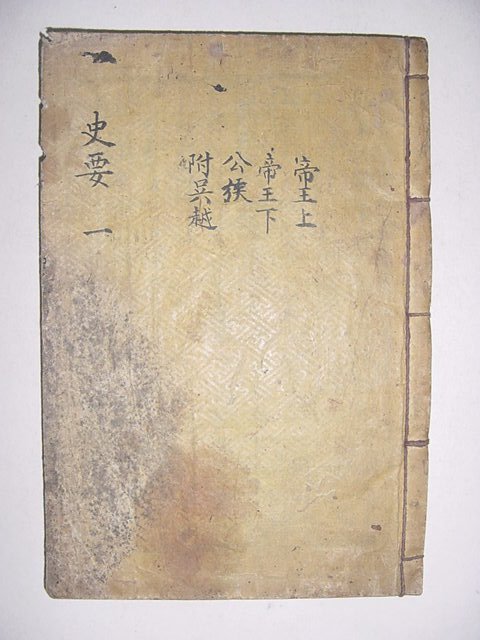 史要 一
帝王上
帝王下
公侯
附吳越